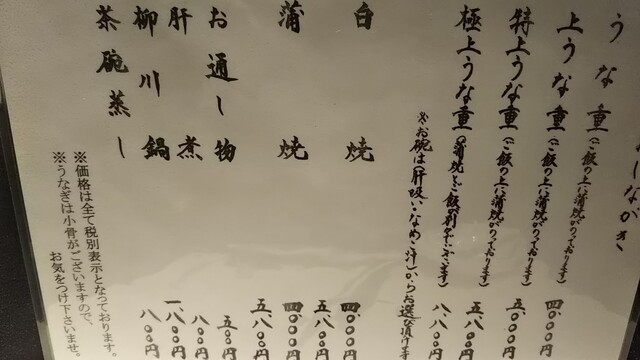 しながき
うな重(ご飯の上に蒲焼がのっております) 四、〇〇〇円
上うな重(ご飯の上に蒲焼がのっております) 五、〇〇〇円
特上うな重(ご飯の上に蒲焼がのっております) 五、八〇〇円
極上うな重(蒲焼とご飯が別々でございます) 八、八〇〇円
※お碗は(肝吸い・なめこ汁)からお選び頂けます
白焼 四、〇〇〇円
五、八〇〇円
蒲焼 四、〇〇〇円
五、八〇〇円
お通し物 五〇〇円
肝煮 八〇〇円
柳川鍋 一、八〇〇円
茶碗蒸し 八〇〇円
※価格は全て税別表示となっております。
※うなぎは小骨がございますので、
お気をつけ下さいませ。